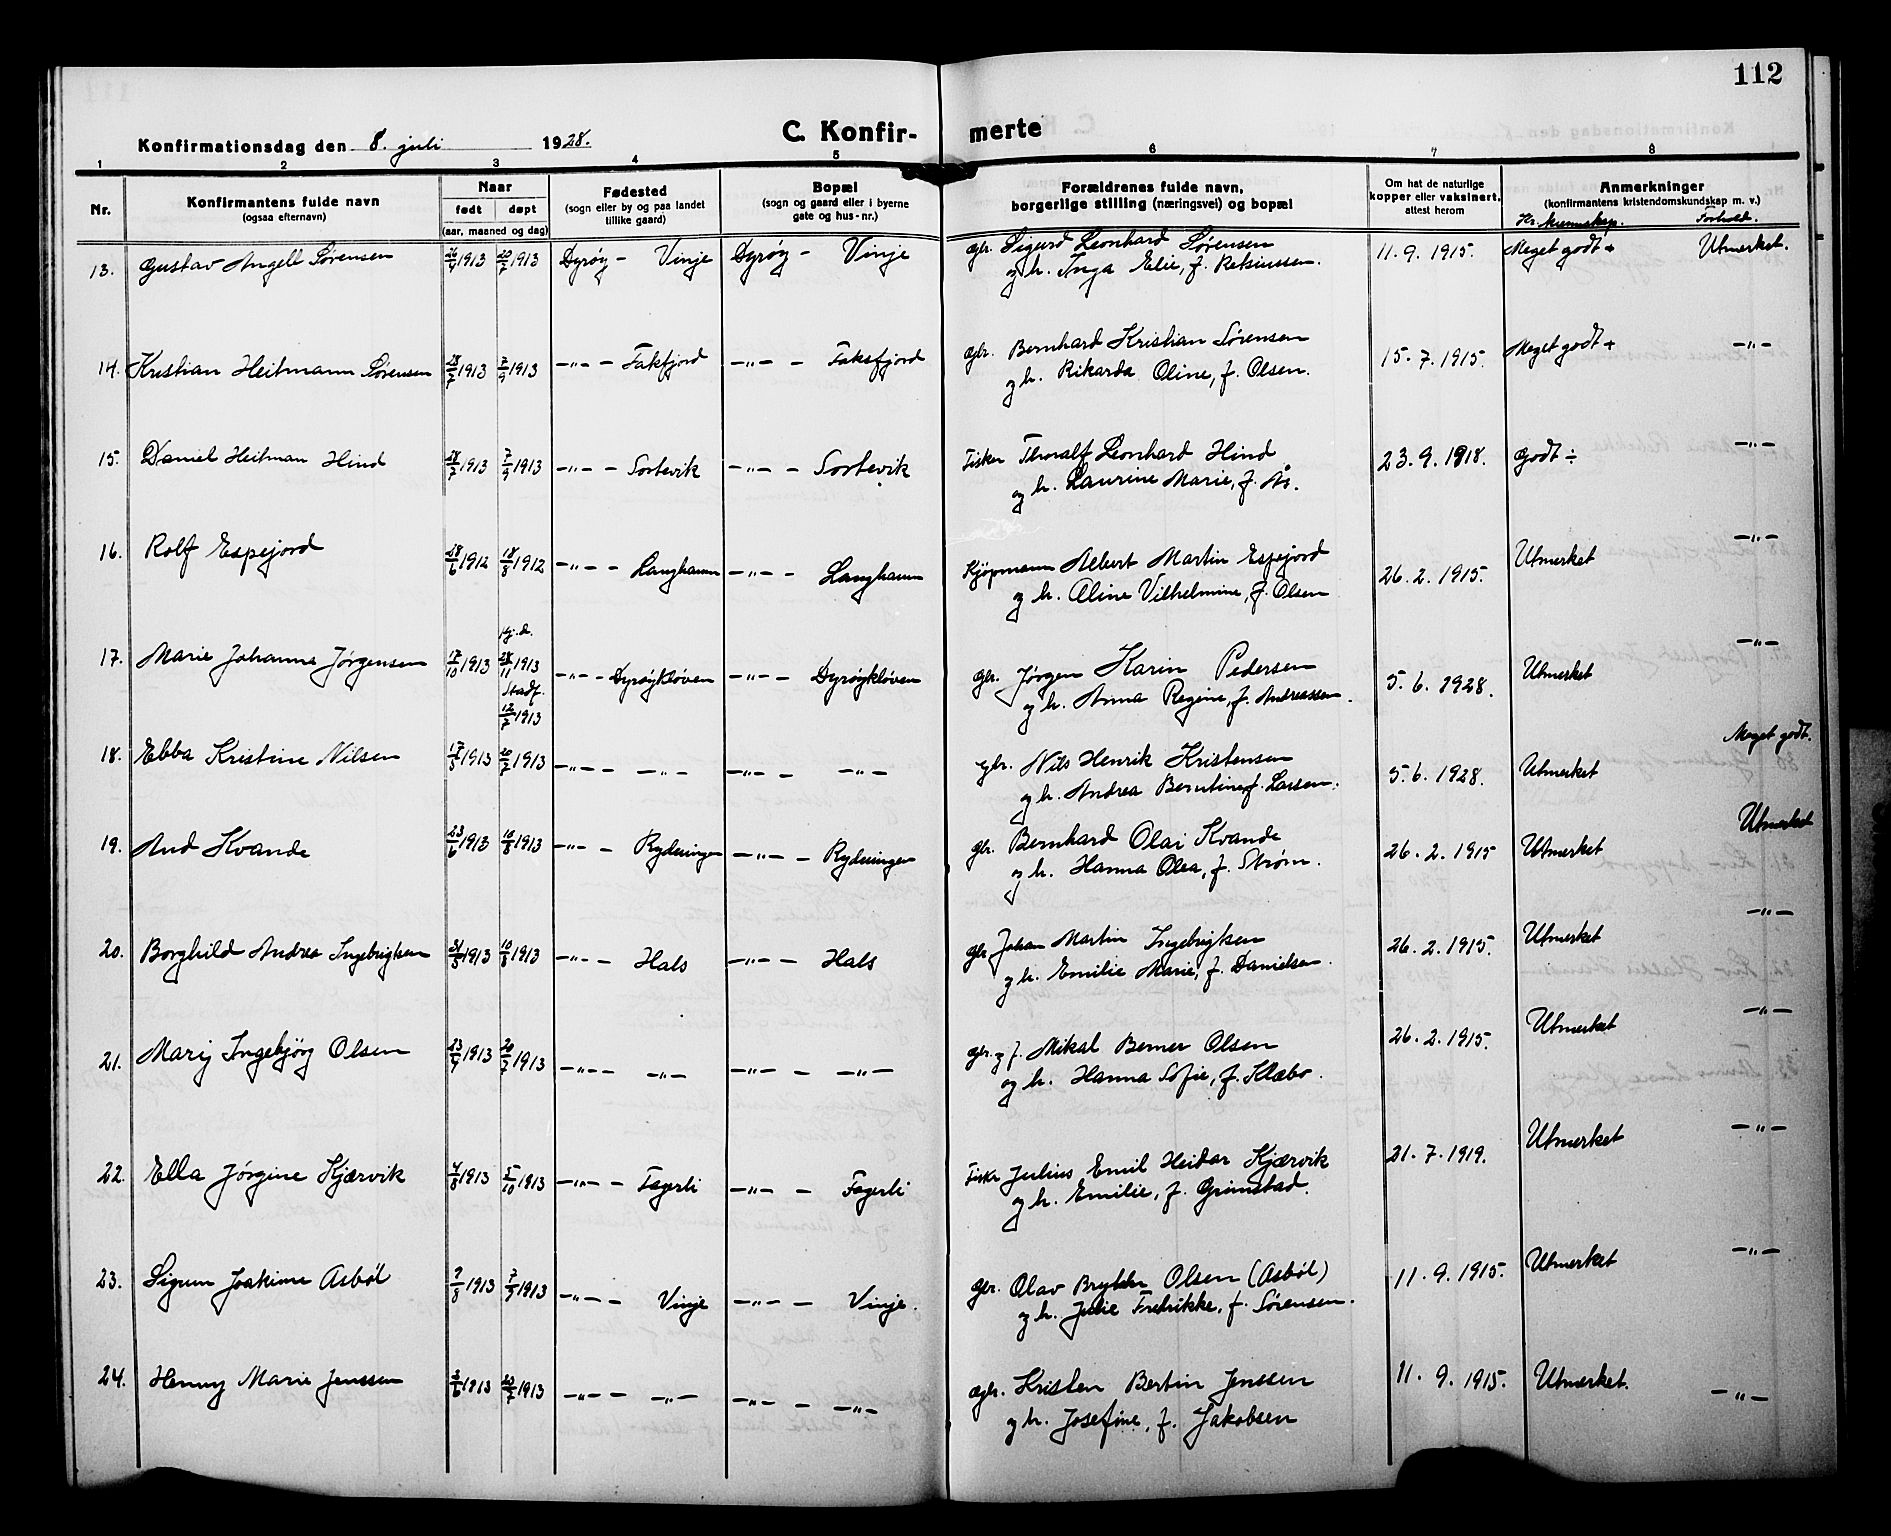 112
C. Konfirmerte
Konfirmationsdag den 8. juli 1928.
1 2 3 4 5 6 7 8
Nr. Konfirmantens fulde navn (ogsaa efternavn) Naar født døpt (aar, maaned og dag) Fødested (sogn eller by og paa landet tillike gaard) Bopæl (sogn og gaard eller i byerne gate og hus-nr.) Forældrenes fulde navn, borgerlige stilling (næringsvei) og bopæl Om hat de naturlige kopper eller vaksinert, attest herom Anmerkninger (konfirmantens kristendomskundskap m. v.)
Kr. kunnskap. Forhold.
13. Gustav Angell Sørensen 26/4 1913 20/7 1913 Dyrøy - Vinje Dyrøy - Vinje Gbr. Sigurd Leonhard Sørensen 11.9.1915. Meget godt + Utmerket.
og h. Inga Elie, f.
14. Kristian Heitmann Sørensen 28/7 1913 7/9 1913 -"- - Faksfjord -"- - Faksfjord Gbr. Bernhard Kristian Sørensen 15.7.1915. Meget godt + -"-
og h. Rikarda Oline, f. Olsen.
15. Daniel Heitman Hind 28/7 1913 7/9 1913 -"- - Sortevik -"- - Sortevik Fisker Thoralf Leonhard Hind 23.9.1918. Godt ÷ -"-
og h. Laurine Marie, f. Ås.
16. Rolf Espejord 28/6 1912 18/8 1912 -"- - Langhamn -"- - Langhamn Kjøpmann Albert Martin Espejord 26.2.1915. Utmerket -"-
og h. Aline Vilhelmine, f. Olsen
17. Marie Johanna Jørgensen 17/10 1913 Hj.d. 28/11 1913 Stadf. 12/7 1913 -"- - Dyrøykløven -"- - Dyrøykløven Gbr. Jørgen Karin Pedersen 5.6.1928. Utmerket -"-
og h. Anna Regine, f. Andreassen.
18. Ebba Kristine Nilsen 17/5 1913 20/7 1913 -"- - -"- -"- - -"- Gbr. Nils Henrik Kristensen 5.6.1928. Utmerket Meget godt.
og h. Andrea Berntine f. Larsen.
19. Aud Kvande 23/6 1913 10/8 1913 -"- - -"- - Gbr. Bernhard Olai Kvande 26.2.1915 Utmerket Utmerket
og h. Hanna Olea, f. Strøm.
20. Borghild Andrea Ingebrigtsen 31/5 1913 10/8 1913 -"- - Hals -"- - Hals Gbr Johan Martin Ingebrigtsen 26.2.1915. Utmerket -"-
og h. Emilie Marie, f. Danielsen.
21. Marij Ingebjørg Olsen 23/4 1913 20/7 1913 -"- - -"- -"- - -"- Gbr. og f. Mikal Berner Olsen 26.2.1915. Utmerket -"-
og h. Hanna Sofie, f. Klæbo.
22. Ella Jørgine Kjærvik 4/8 1913 5/10 1913 -"- - Fagerli -"- - Fagerli Fisker Julius Emil Heidar Kjærvik 21.7.1919. Utmerket -"-
og h. Emilie, f. Grimstad.
23. Sigrun Joakime Asbøl 9/8 1913 7/9 1913 -"- - Vinje -"- - Vinje. Gbr. Olav Olsen (Asbøl) 11.9.1915. Utmerket -"-
og h. Julie Fredrikke, f. Sørensen.
24. Henny Marie Jenssen 3/6 1913 20/7 1913 -"- - -"- -"- - -"- Gbr. Kristen Bertin Jenssen 11.9.1915. Utmerket. -"-
og h. Josefine, f. Jakobsen